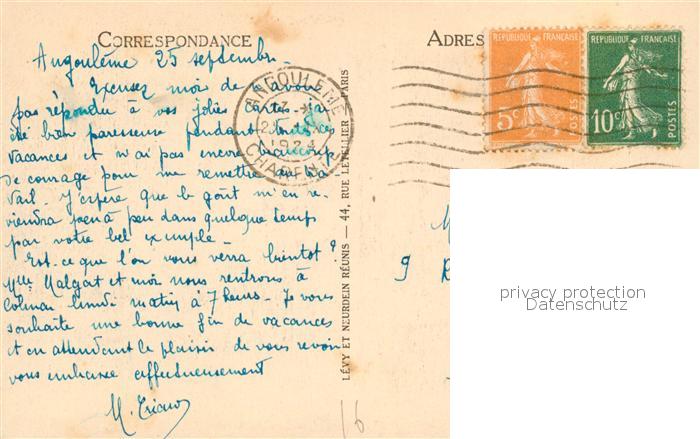 CORRESPONDANCE
Angoulême 25 septembre.
Excusez moi de n'avoir
pas répondu à vos jolies cartes. j'ai
été bien paresseuse pendant toutes ces
vacances et n'ai pas encore beaucoup
de courage pour me remettre au tra
vail. J'espère que le goût m'en re-
viendra peu à peu dans quelque temps
par votre bel exemple.
Est-ce que l'on vous verra bientôt?
Mlle Malgat et moi nous rentrons à
Colmar lundi matin à 7 heures. Je vous
souhaite une bonne fin de vacances
et en attendant le plaisir de vous revoir
vous embrasse affectueusement
M.
ANGOULEME
CHARENTE
LÉVY ET NEURDEIN RÉUNIS — 44, RUE LETELLIER — PARIS
ADRES
REPUBLIQUE FRANÇAISE
5c
POSTES
REPUBLIQUE FRANÇAISE
10c
POSTES
9 R
privacy protection
Datenschutz
16